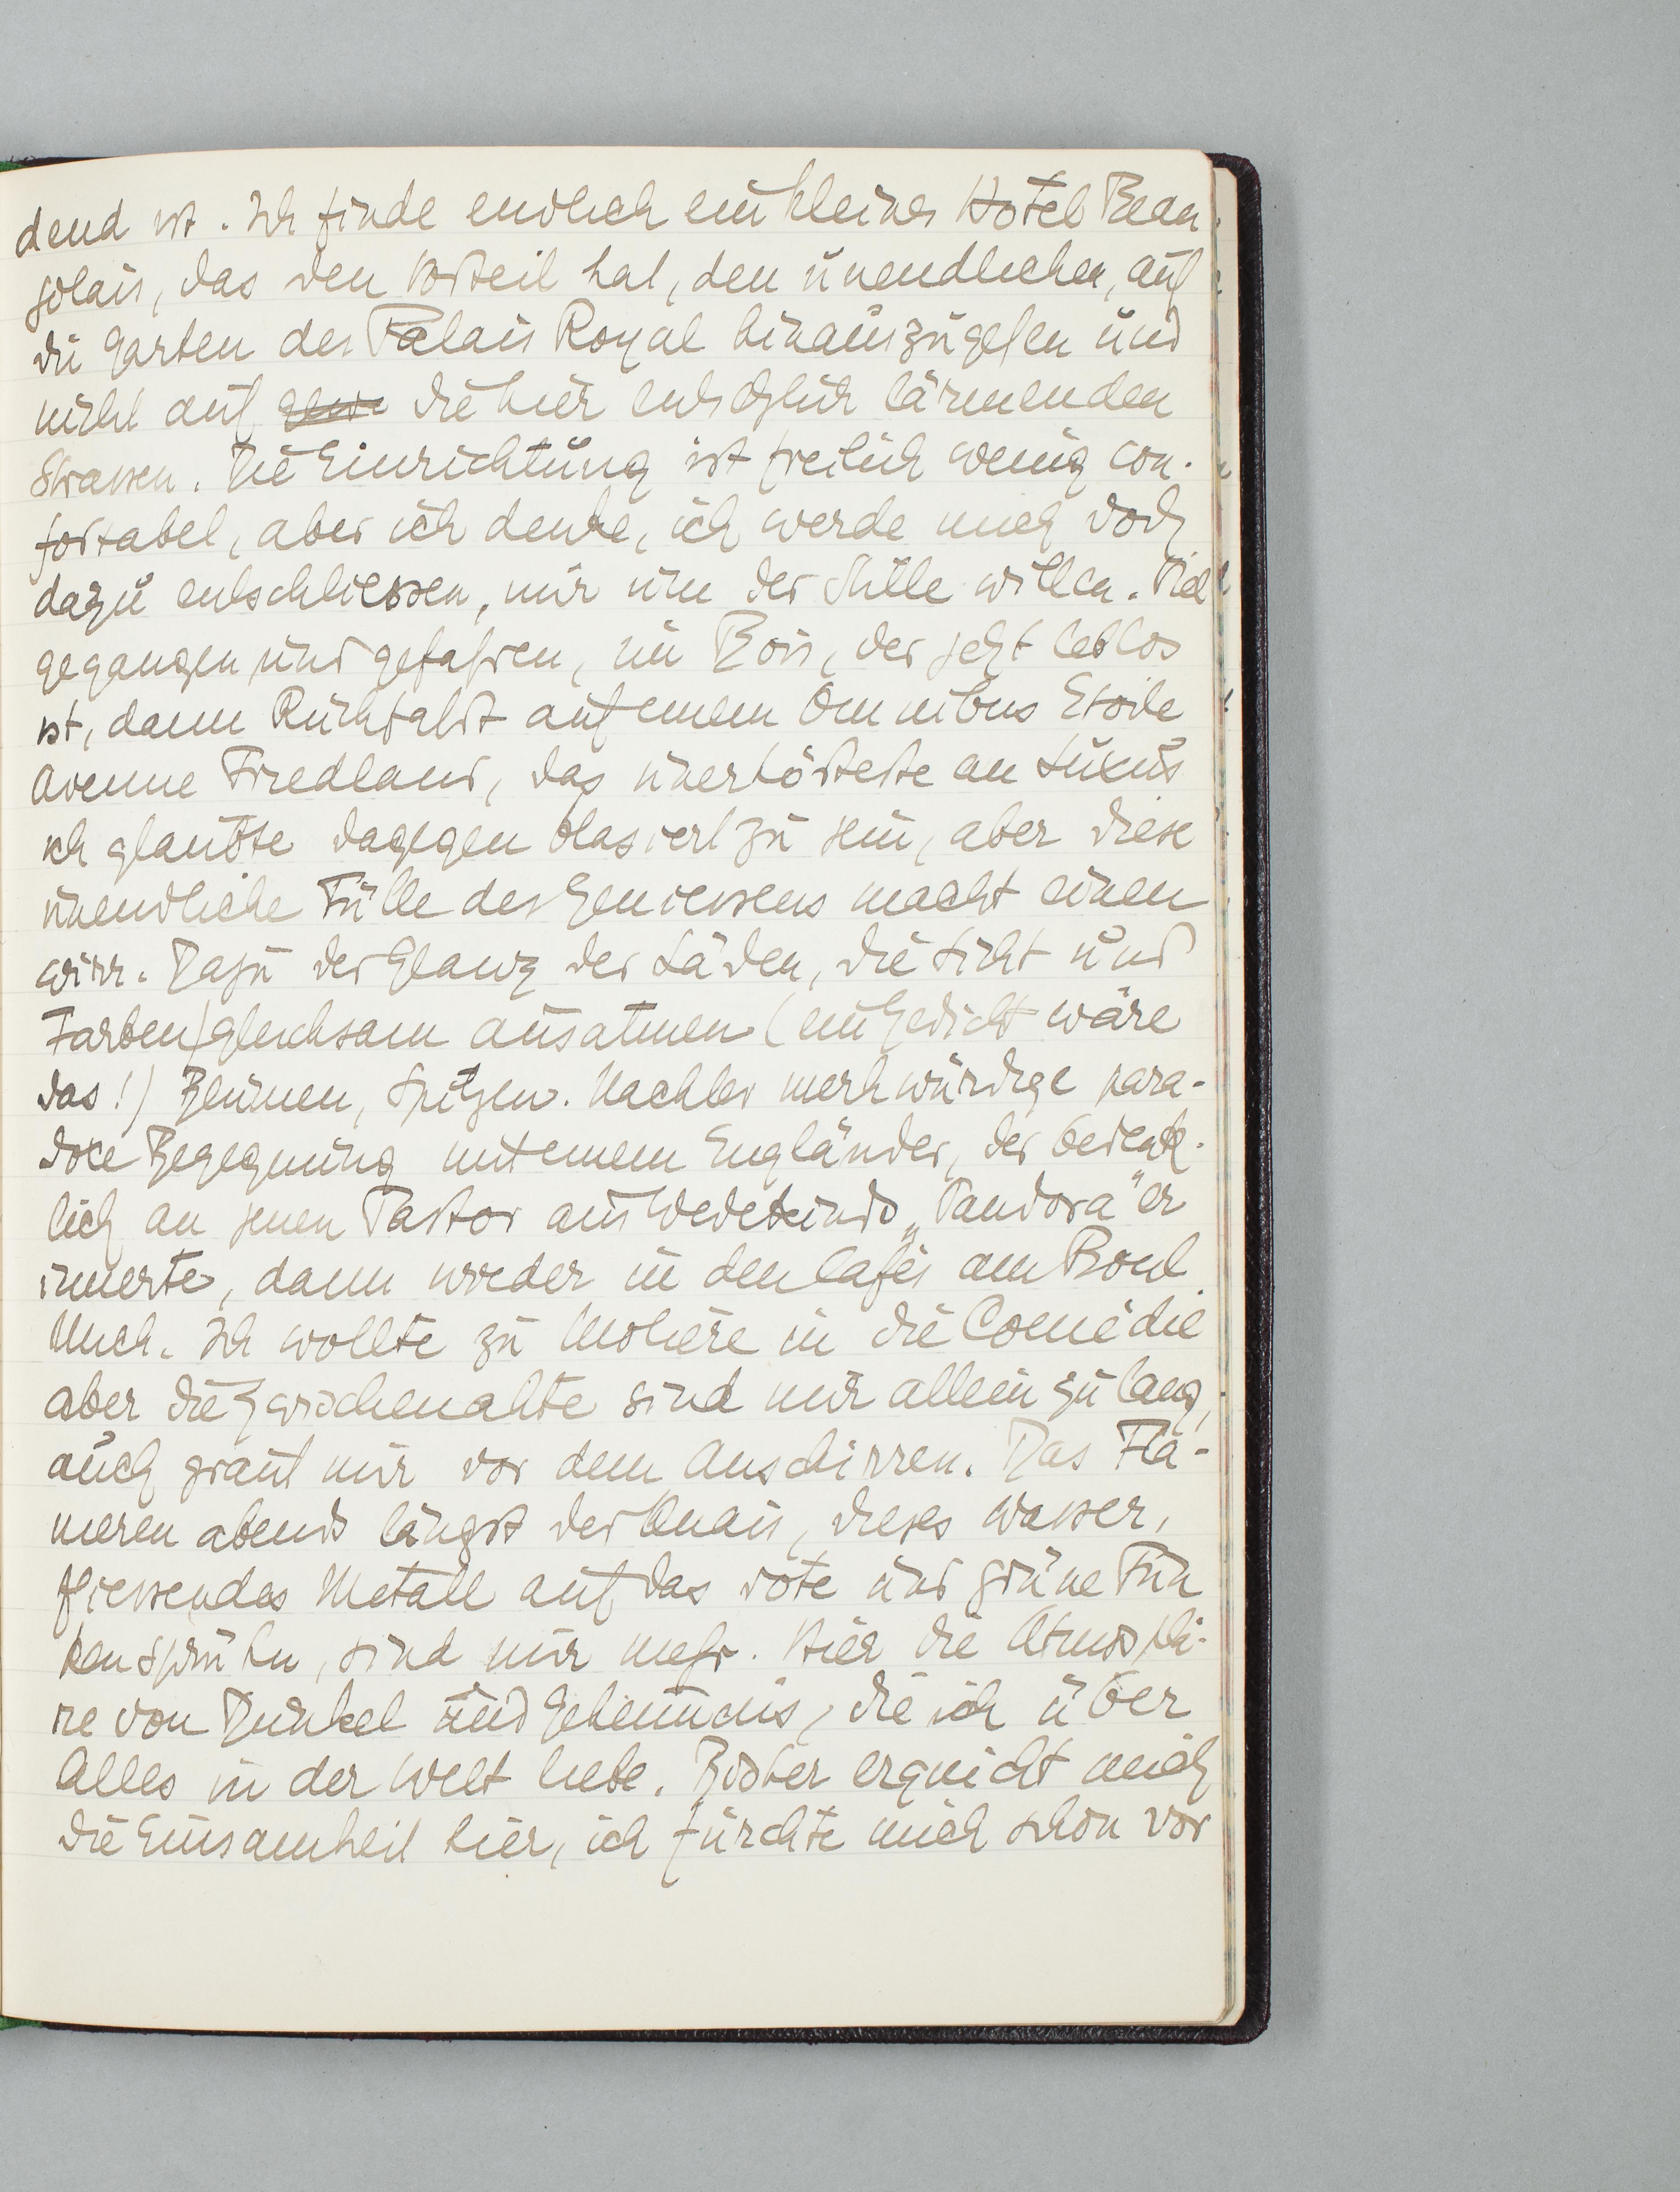 dend ist. Ich finde endlich ein kleines Hotel Beau
jolais, das den Vorteil hat, den unendlichen, auf
die Garten des Palais Royal hinauszugehen und
nicht auf die hier entsetzlich lärmenden
Strassen. Die Einrichtung ist freilich wenig con-
fortabel, aber ich denke, ich werde mich doch
dazu entschliessen, nur um der Stille willen. Viel
gegangen und gefahren, im Bois, der jetzt leblos
ist, dann Rückfahrt auf einem Omnibus Etoile
Avenue Friedland, das unerhörteste an Luxus
ich glaubte dagegen blasiert zu sein, aber diese
unendliche Fülle des Geniessens macht einen
wirr. Dazu der Glanz der Läden, die Licht und
Farben gleichsam ausatmen (ein Gedicht wäre
das!) Blumen, Spitzen. Nachher merkwürdige para-
doxe Begegnung mit einem Engländer, der bedenk-
lich an jenen Pastor aus Wedekinds „Pandora" er
innerte, dann wieder in den Cafés am Boul
Mich. Ich wollte zu Molière in die Comédie
aber die Zwischenakte sind mir allein zu lang,
auch graut mir vor dem Anschirren. Das Fla-
nieren abends längst der Quais, dieses Wasser,
fliessendes Metall auf das rote und grüne Fun
ken sprühn, sind mir mehr. Hier die Atmosphä-
re von Dunkel und Geheimnis, die ich über
Alles in der Welt liebe. Bisher erquickt mich
die Einsamkeit hier, ich fürchte mich schon vor